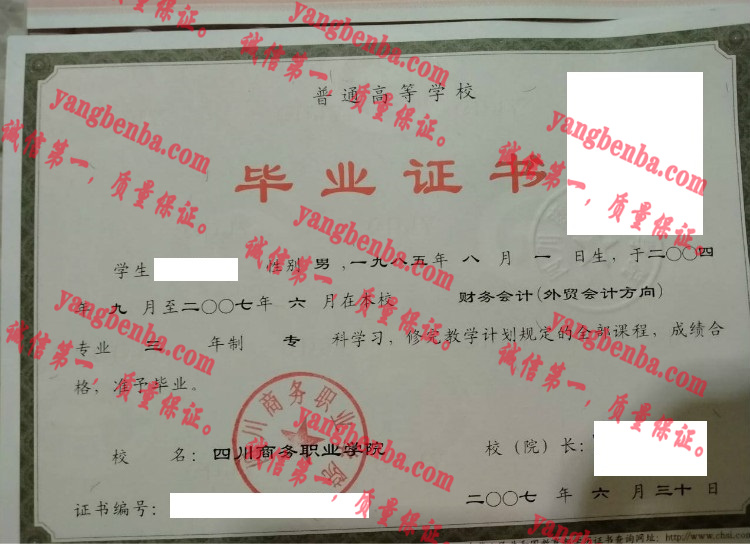 普通高等学校
毕业证书
学生 性别 男,一九八五年 八 月 一 日生,于二〇〇四
年 九 月至二〇〇七年 六 月在本校 财务会计(外贸会计方向)
专业 三 年制 专 科学习,修完教学计划规定的全部课程,成绩合
格,准予毕业。
四川商务职业学院
校 名:四川商务职业学院 校(院)长:
证书编号: 二〇〇七 年 六 月 三十 日
证书查询网址:http://www.chsi.com
yangbenba.com
诚信第一,质量保证。
yangbenba.com
诚信第一,质量保证。
yangbenba.com
诚信第一,质量保证。
yangbenba.com
诚信第一,质量保证。
yangbenba.com
诚信第一,质量保证。
yangbenba.com
诚信第一,质量保证。
yangbenba.com
诚信第一,质量保证。
yangbenba.com
诚信第一,质量保证。